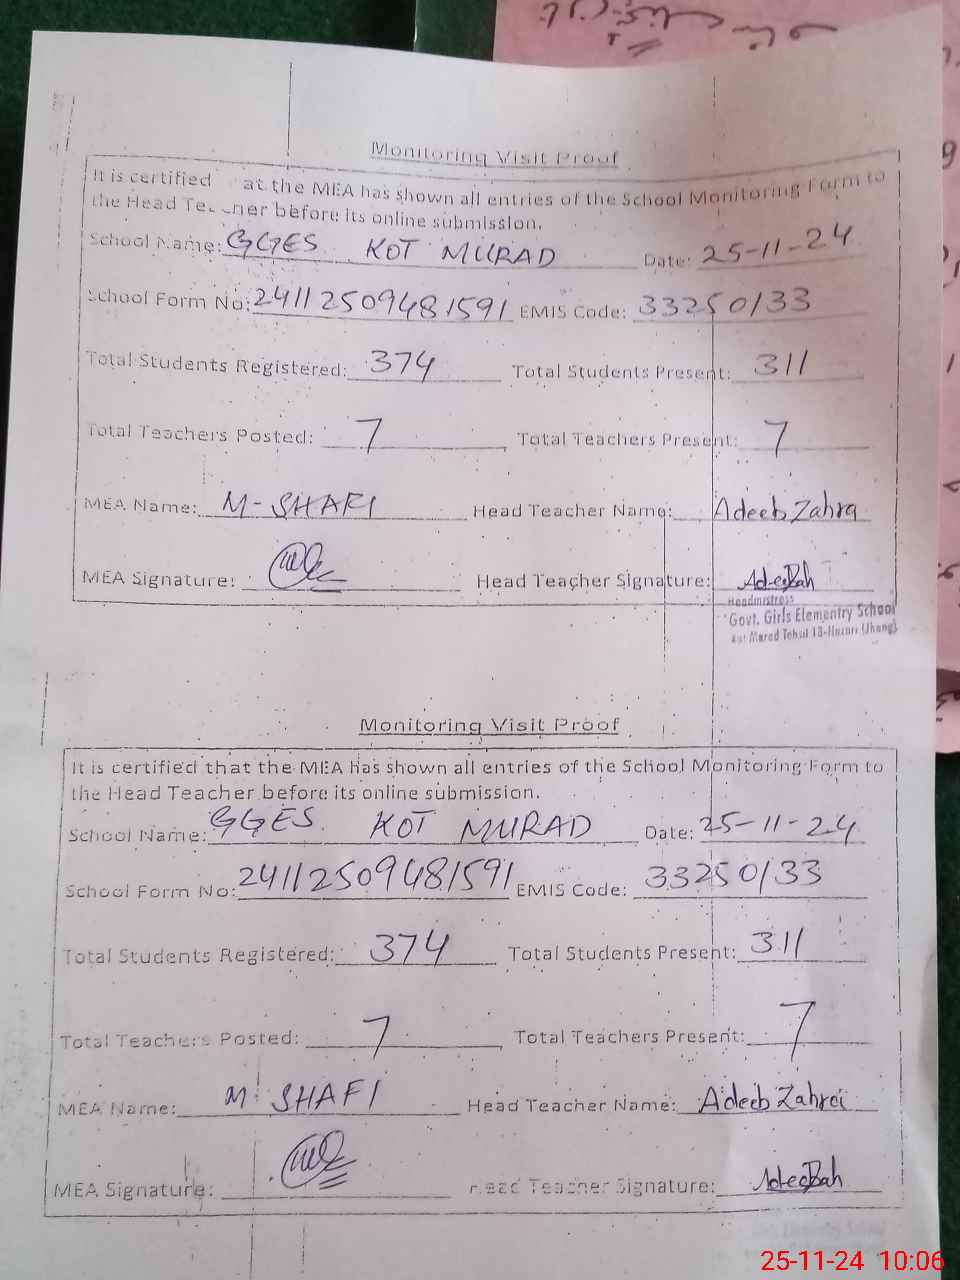 Monitoring Visit Proof
It is certified at the MEA has shown all entries of the School Monitoring Form to
the Head before its online submission.
School Name: GGES KOT MURAD Date: 25-11-24
School Form No: 241125094481591 EMIS Code: 33250133
Total Students Registered: 374 Total Students Present: 311
Total Teachers Posted: 7 Total Teachers Present: 7
MEA Name: M-SHAFI Head Teacher Name: Adeeb Zahra
MEA Signature: Head Teacher Signature:
Headmistress
Govt. Girls Elementry School
Kot Murad Tehsil 18-Hazari (Jhang)
Monitoring Visit Proof
It is certified that the MEA has shown all entries of the School Monitoring Form to
the Head Teacher before its online submission.
School Name: GGES KOT MURAD Date: 25-11-24
School Form No: 241125094481591 EMIS Code: 33250133
Total Students Registered: 374 Total Students Present: 311
Total Teachers Posted: 7 Total Teachers Present: 7
MEA Name: M SHAFI Head Teacher Name: Adeeb Zahra
MEA Signature: Head Teacher Signature:
25-11-24 10:06